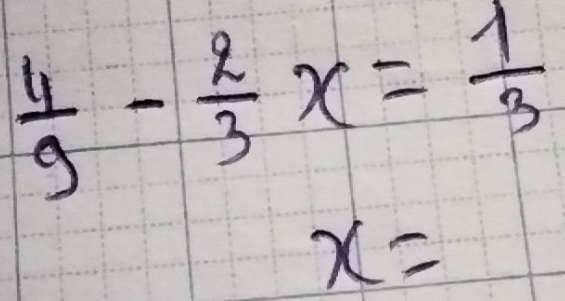 4/9 - 2/3 x = 1/3
x =